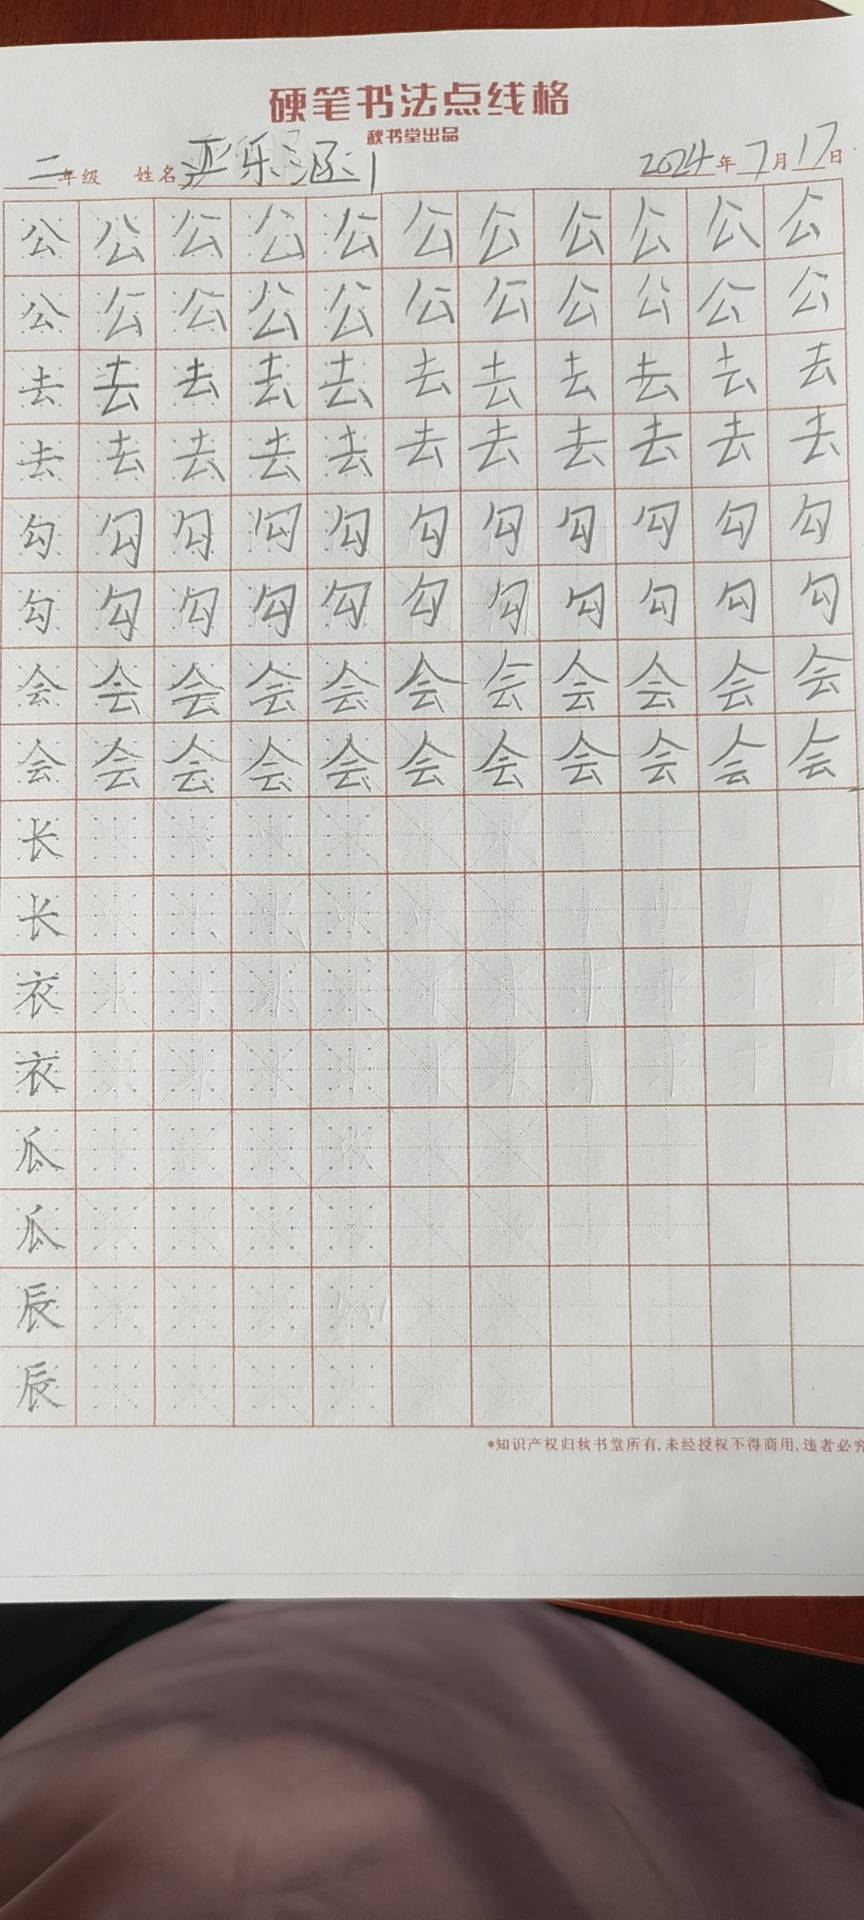 硬笔书法点线格
秋书堂出品
二年级 姓名严乐涵 2024年7月17日
公公公公公公公公公公公
公公公公公公公公公公公
去去去去去去去去去去去
去去去去去去去去去去去
勾勾勾勾勾勾勾勾勾勾勾
勾勾勾勾勾勾勾勾勾勾勾
会会会会会会会会会会会
会会会会会会会会会会会
长
长
衣
衣
瓜
瓜
辰
辰
*知识产权归秋书堂所有,未经授权不得商用,违者必究